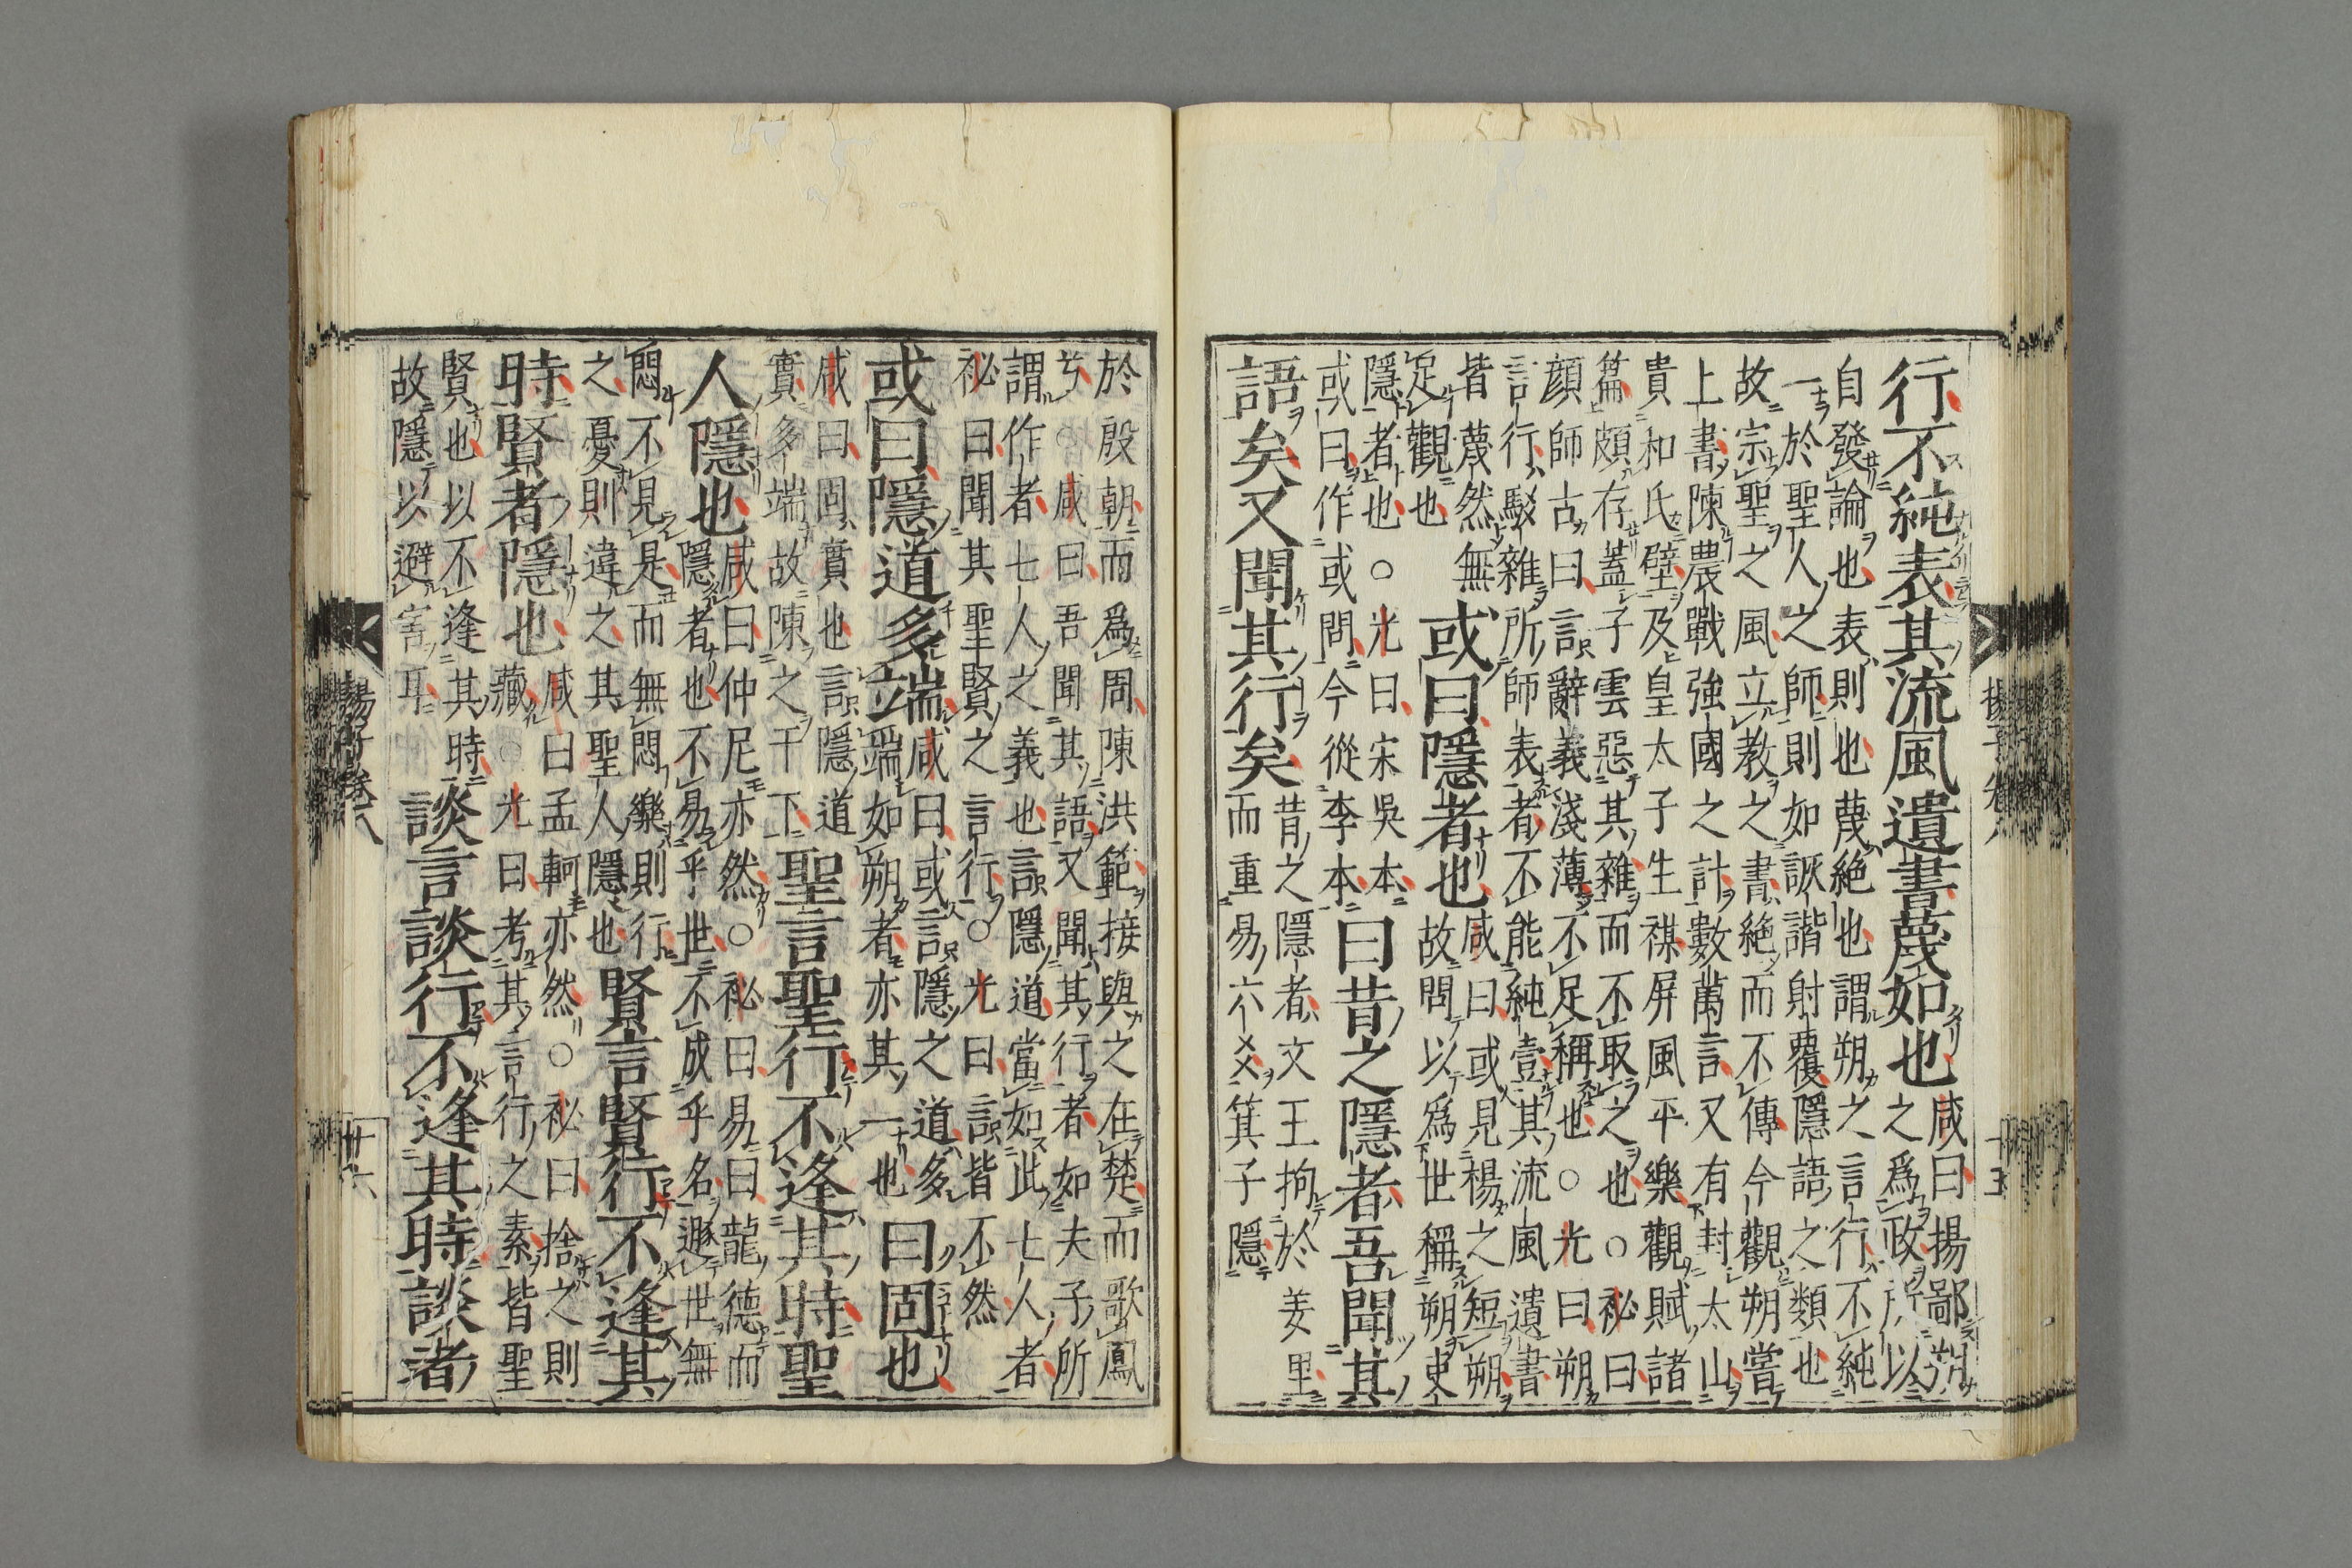 行不純表其流風遺書蔑如也咸曰揚鄙朔
之爲政所以
自發論也表則也蔑絶也謂朔之言行不純
一於聖人之師則如詼諧射覆隱語之類也
故宗聖之風立教之書絶而不傳今觀朔嘗
上書陳農戰強國之計數萬言又有封太山
貴和氏璧及皇太子生禖屏風平樂觀賦諸
篇頗存蓋子雲惡其雜而不取之也○祕曰
顔師古曰言辭義淺薄不足稱也○光曰朔
言行駁雜所師表者不能純壹其流風遺書
皆蔑然無
足觀也
或曰隱者也
咸曰或見楊之短朔
故問以爲世稱朔吏
隱者也○光曰宋吳本
或曰作或問今從李本
曰昔之隱者吾聞其
語矣又聞其行矣
昔之隱者文王拘於姜里
而重易六爻箕子隱
揚子卷八
十五
於殷朝而爲周陳洪範接輿之在楚而歌鳳
兮○咸曰吾聞其語又聞其行者如夫子所
謂作者七人之義也言隱道當如此七人者
祕曰聞其聖賢之言行○光曰言皆不然
或曰隱道多端
咸曰或言隱之道多
端如朔者亦其一也
曰固也
咸曰固實也言隱道
實多端故陳之于下
聖言聖行不逢其時聖
人隱也
咸曰仲尼亦然○祕曰易曰龍德而
隱者也不易乎世不成乎名遯世無
悶不見是而無悶樂則行
之憂則違之其聖人隱也
賢言賢行不逢其
時賢者隱也
咸曰孟軻亦然○祕曰捨之則
藏○光曰考其言行之素皆聖
賢也以不逢其時
故隱以避害耳
談言談行不逢其時談者
揚子卷八
廿六